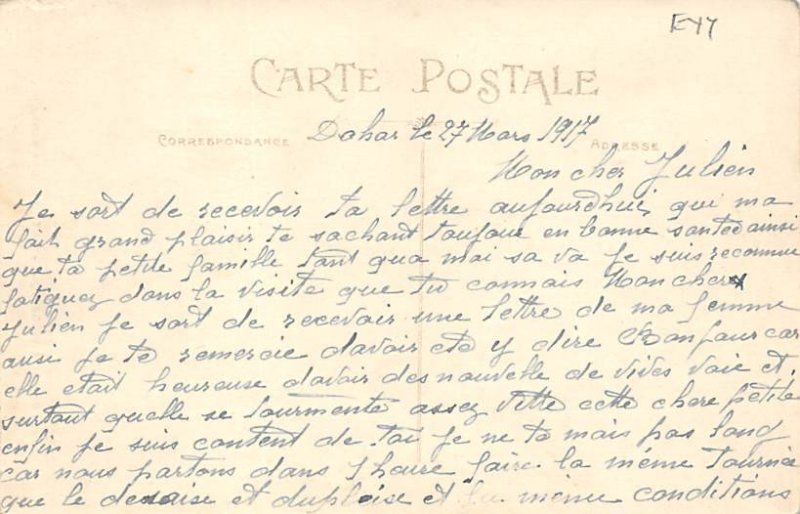 E47
CARTE POSTALE
CORRESPONDANCE
ADRESSE
Dakar le 27 Mars 1917
Mon cher Julien
Je sort de recevoir ta lettre aujourdhui qui ma
fait grand plaisir te sachant toujour en bonne santee ainsi
que ta petite famille tant qua mai sa va je suis reconnue
fatiguez dans la visite que tu connais Mon cher
Julien je sort de recevoir une lettre de ma femme
ausi je te remercie davoir ete y dire Bonjour car
elle etait heureuse davoir des nouvelle de vives voie et
surtaut quelle se tourmente assez vitte cette chere petite
enfin je suis content de tai je ne te mais pas long
car nous partons dans 1 heure faire la même tournée
que le et et même conditions